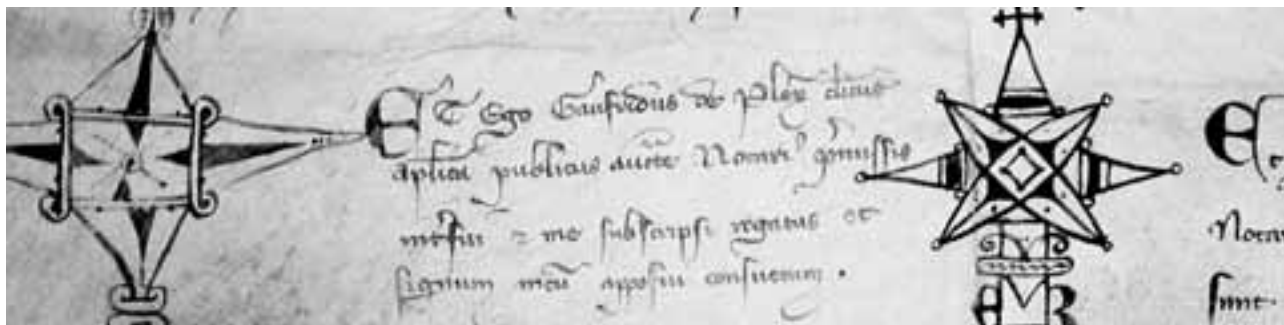 ET Ego Gaufridus de Plex clicus
aplica publicus aucte Notari pmissis
interfui me subscripsi rogatus et
signum meu apposui consuetum.
E
Notar
sunt.
E R